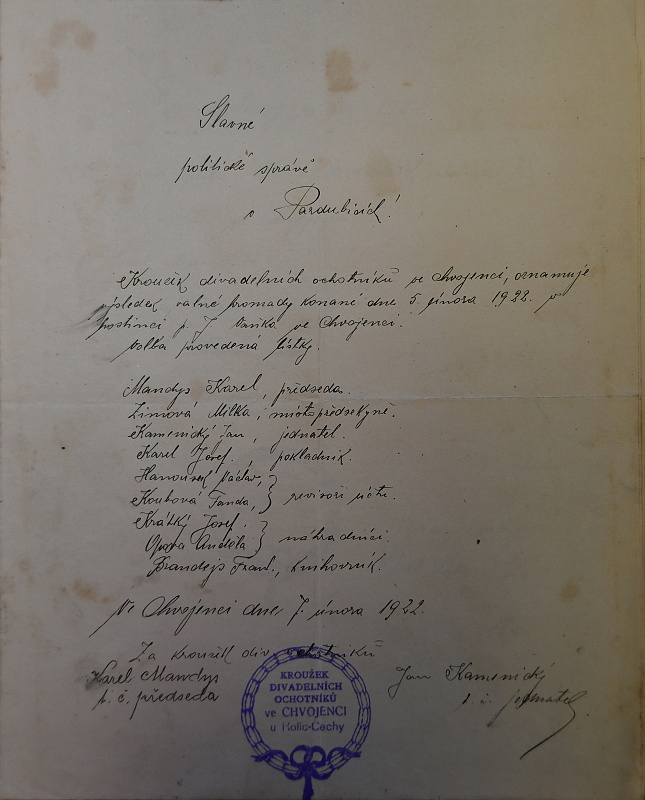 Slavné
politické správě
v Pardubicích!
Kroužek divadelních ochotníků ve Chvojenci, oznamuje
výsledek valné hromady konané dne 5. února 1922. v
hostinci p. J. Vaňka ve Chvojenci.
Volba provedená lístky.
Mandys Karel, předseda.
Zimová Milka, místopředsedkyně.
Kamenický Jan, jednatel.
Karel Josef. pokladník.
Hanousek Václav,
Koubová Fanda, } revisoři účtů.
Krátký Josef.
Opava Anděla } náhradníci.
Brandejs Frant., knihovník.
Ve Chvojenci dne 7. února 1922.
Za kroužek div. ochotníků
Karel Mandys
t. č. předseda
Jan Kamenický
t. č. jednatel
KROUŽEK
DIVADELNÍCH
OCHOTNÍKŮ
ve CHVOJENCI
u Holic-Čechy